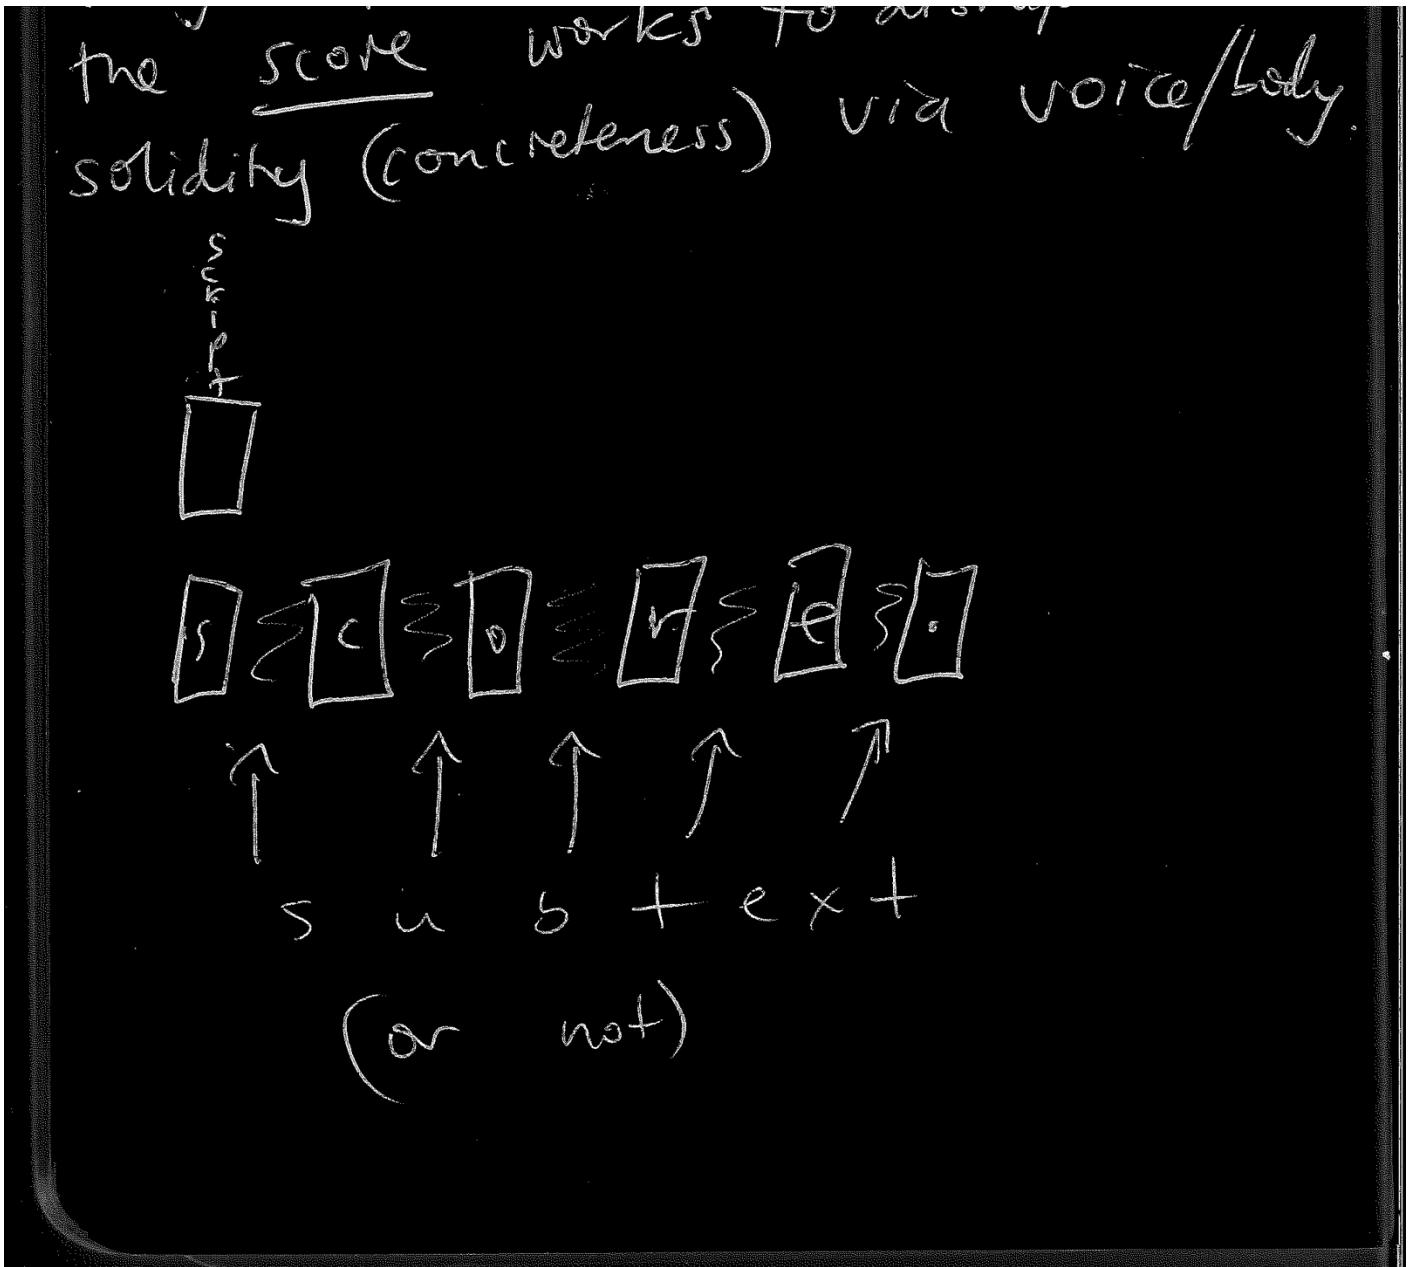 the score works to
solidity (concreteness) via voice/body.
script
s c o r e .
s u b t e x t
(or not)